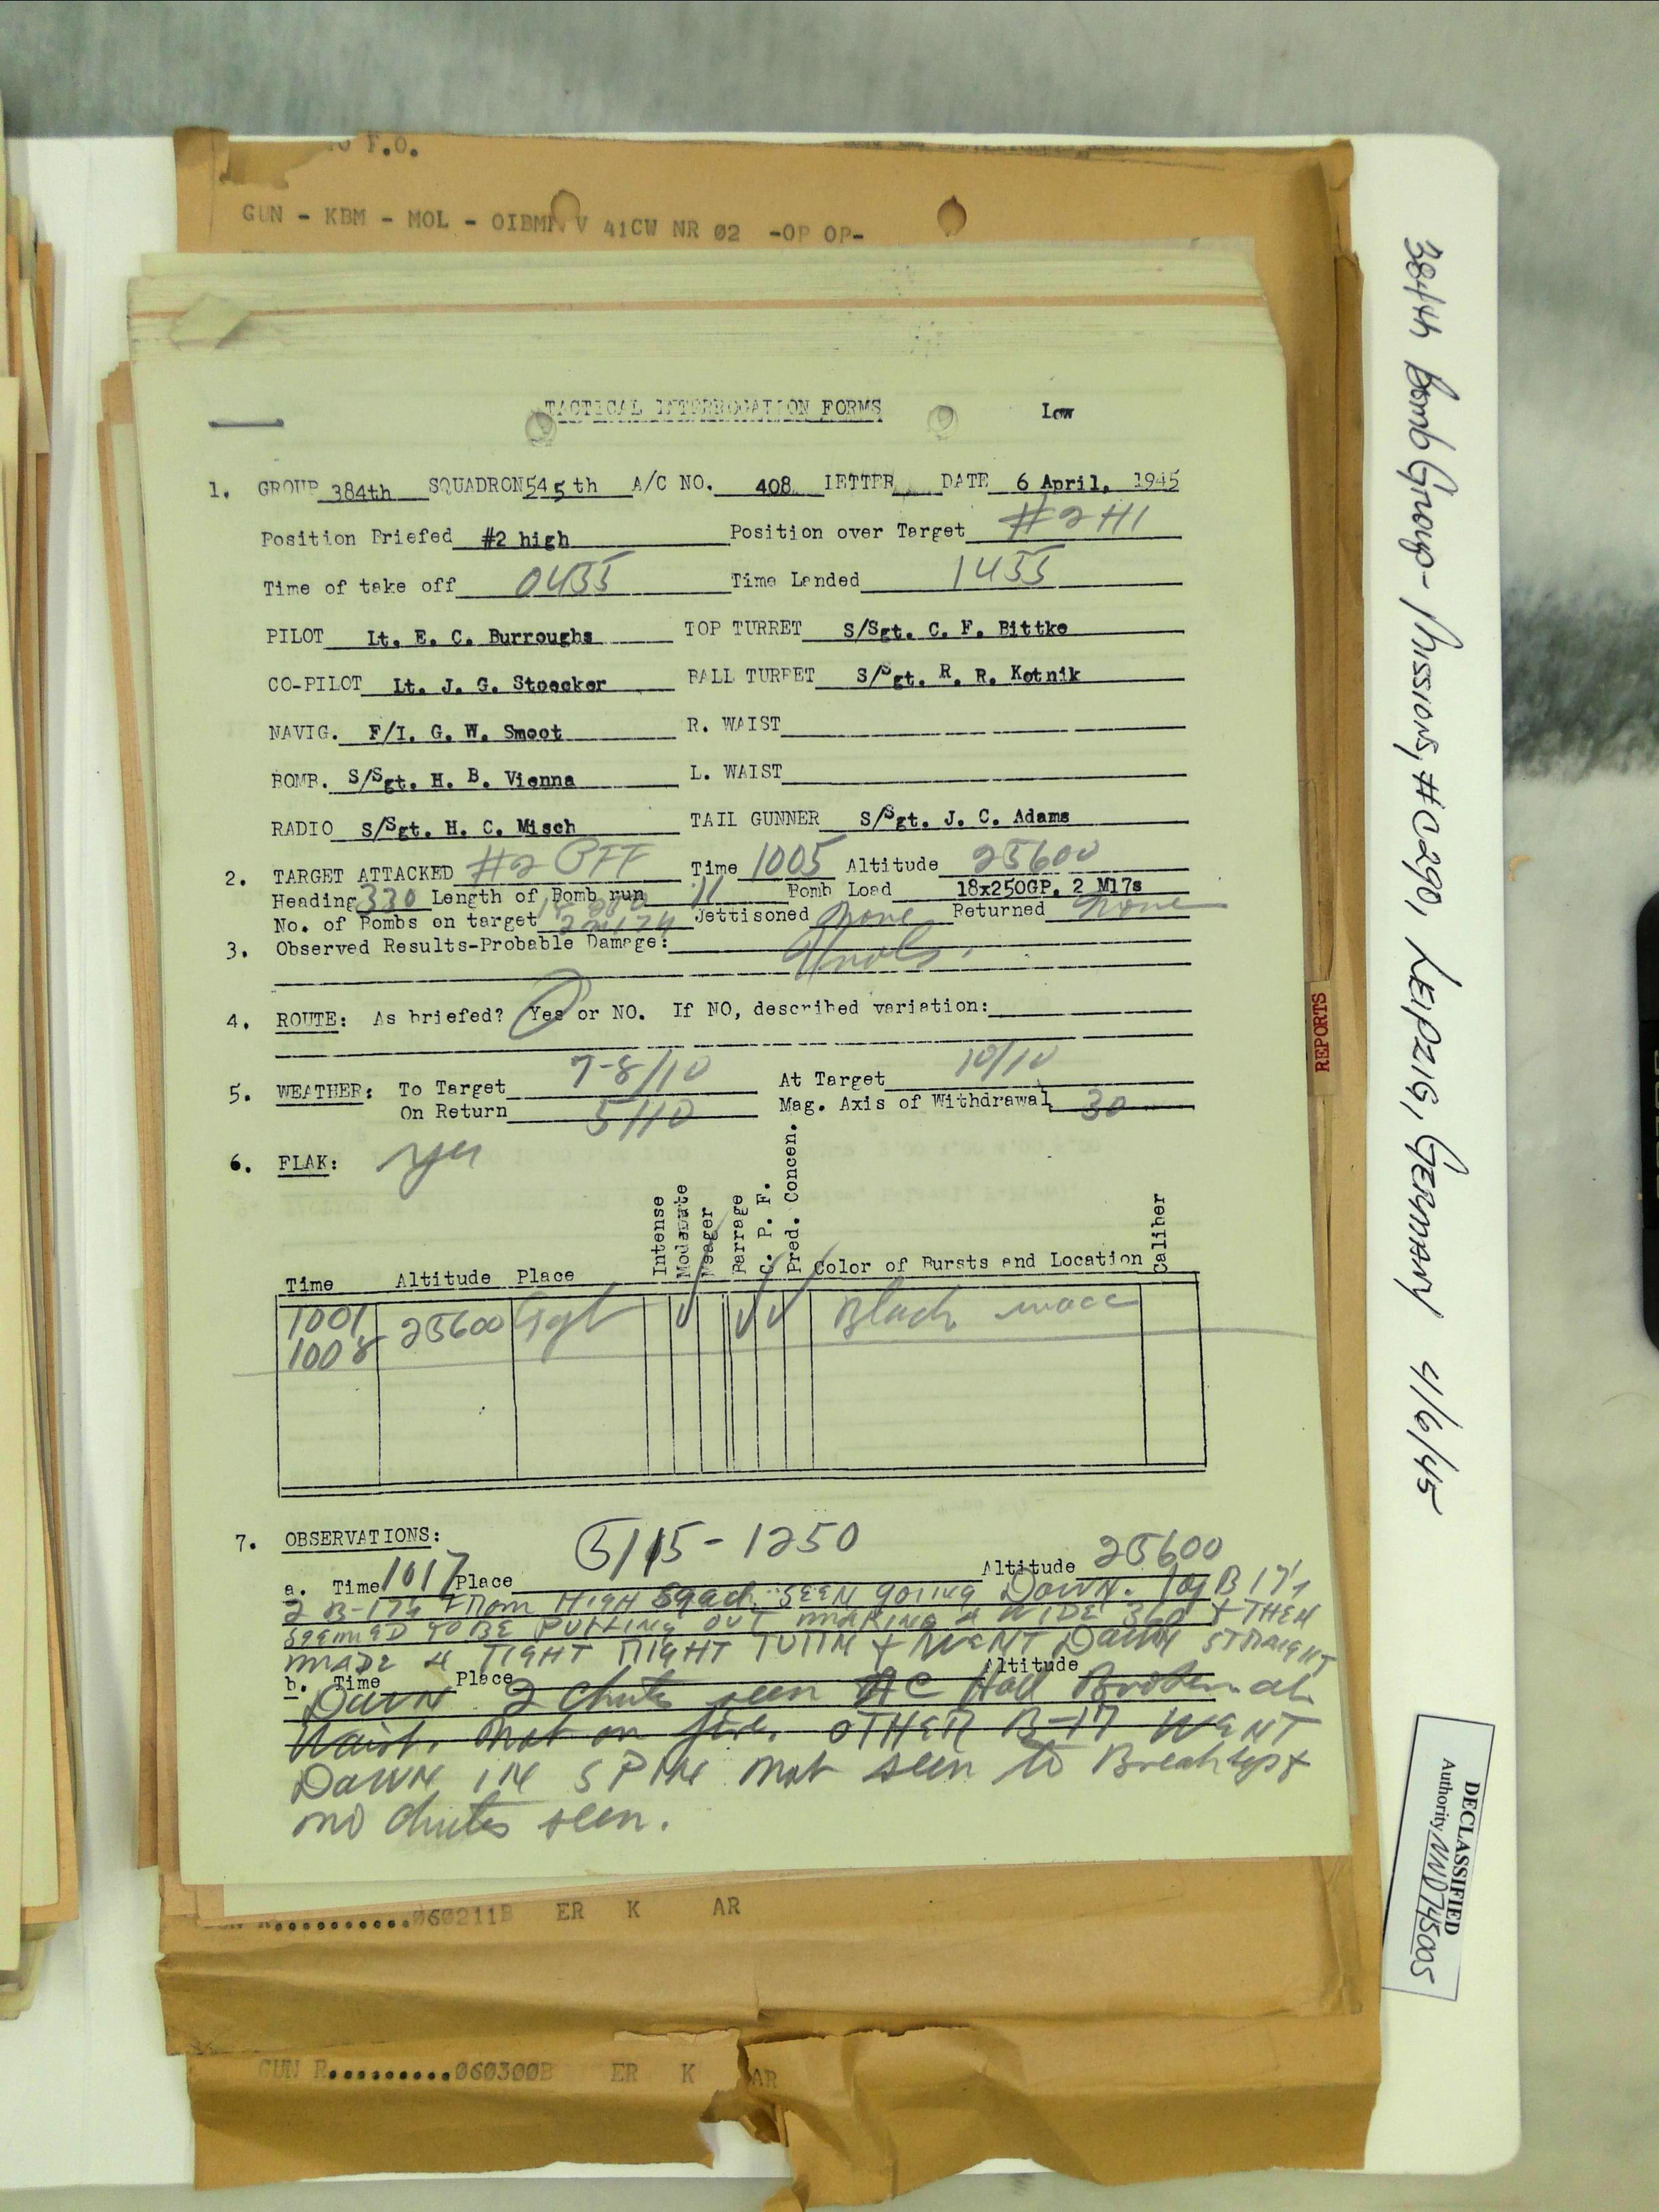 F.O.
GUN - KBM - MOL - OIBMP V 41CW NR 02 -OP OP-
TACTICAL INTERROGATION FORMS Low
1. GROUP 384th SQUADRON 545th A/C NO. 408 LETTER DATE 6 April, 1945
Position Briefed #2 high Position over Target #2 HI
Time of take off 0455 Time Landed 1455
PILOT Lt. E. C. Burroughs TOP TURRET S/Sgt. C. F. Bittke
CO-PILOT Lt. J. G. Stoecker BALL TURRET S/Sgt. R. R. Kotnik
NAVIG. F/I. G. W. Smoot R. WAIST
BOMB. S/Sgt. H. B. Vienna L. WAIST
RADIO S/Sgt. H. C. Misch TAIL GUNNER S/Sgt. J. C. Adams
2. TARGET ATTACKED #2 PFF Time 1005 Altitude 25600
Heading 330 Length of Bomb run 11 Bomb Load 18x250GP, 2 M17s
No. of Bombs on target 2 M17s Jettisoned None Returned None
3. Observed Results-Probable Damage: Unobs.
4. ROUTE: As briefed? Yes or NO. If NO, described variation:
5. WEATHER: To Target 7-8/10 At Target 10/10
On Return 5/10 Mag. Axis of Withdrawal 30
6. FLAK: yes
Time Altitude Place Intense Moderate Meager Barrage C. P. F. Pred. Concen. Color of Bursts and Location Caliber
1001 25600 Tgt Black inacc
1008
7. OBSERVATIONS:
a. Time 1017 Place 5115-1250 Altitude 25600
2 B-17s FROM HIGH Sqad. SEEN GOING DOWN. 1 of B 17's
SEEMED TO BE PULLING OUT MAKING A WIDE 360 & THEN
MADE A TIGHT RIGHT TURN & WENT DOWN STRAIGHT
b. Time Place Altitude
DOWN 2 chutes seen AC Had Broken at
Waist. Not on fire. OTHER B-17 WENT
DOWN IN SPIN not seen to Break up &
no chutes seen.
060211B ER K AR
GUN R..........060300B ER K AR
REPORTS
384th Bomb Group - Missions, #C290, LEIPZIG, GERMANY 4/6/45
DECLASSIFIED
Authority NND745005